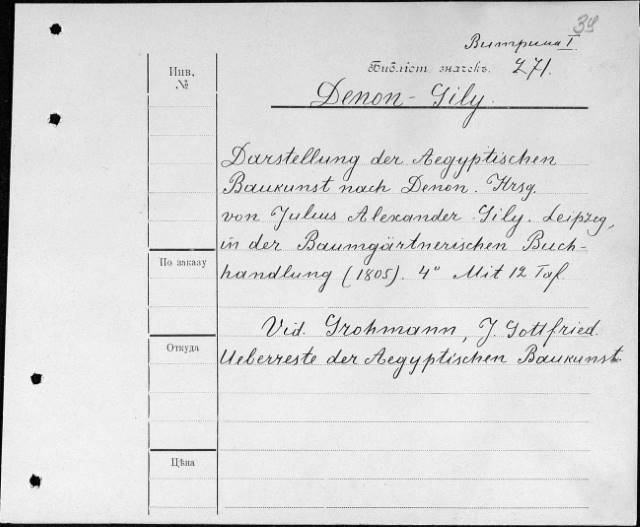 39
Витрина I.
Инв.
№
Библіот. значекъ. Z71.
Denon - Gily.
Darstellung der Aegyptischen
Baukunst nach Denon. Hrsg.
von Julius Alexander Gily. Leipzg,
in der Baumgärtnerischen Buch-
handlung (1805). 4° Mit 12 Taf.
По заказу
Vid. Grohmann, J. Gottfried.
Ueberreste der Aegyptischen Baukunst.
Откуда
Цѣна